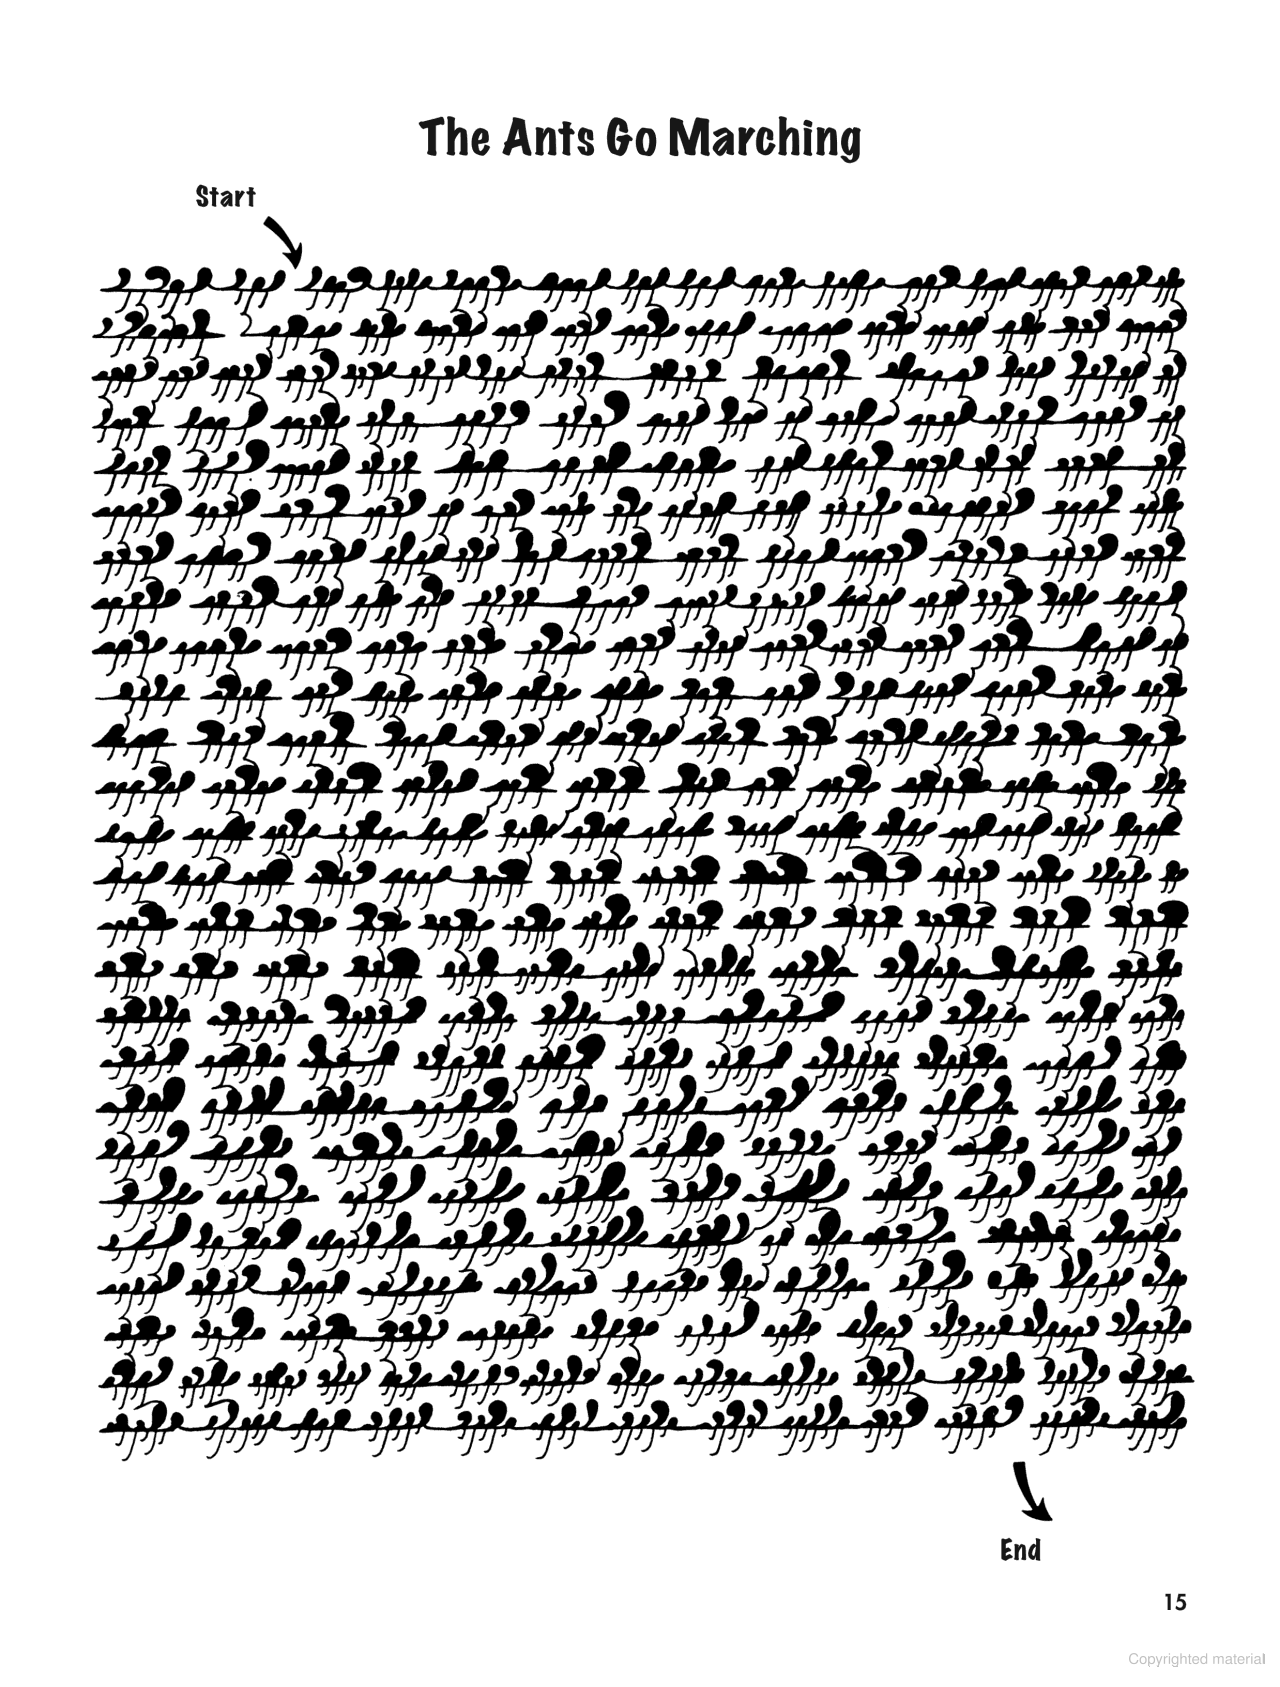 The Ants Go Marching
Start
End
15
Copyrighted material